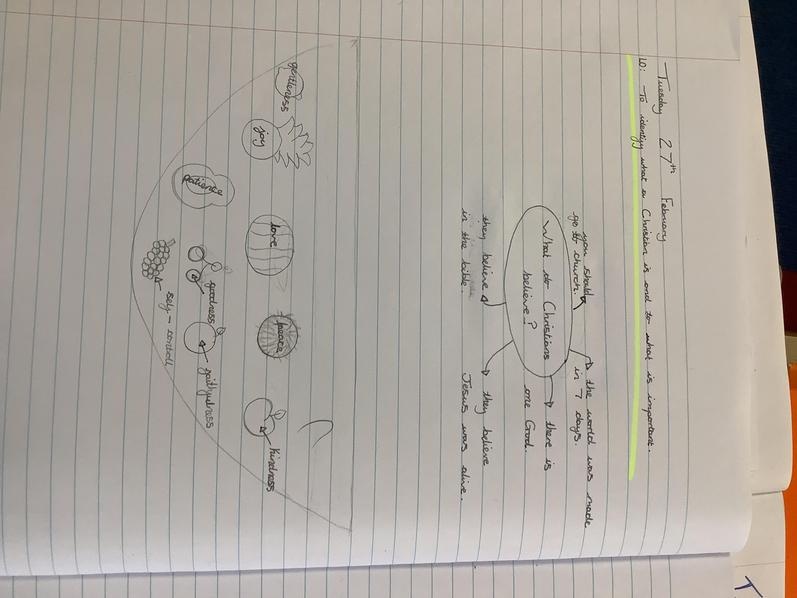 Tuesday 27th February
LO: To identify what a Christian is and to what is important.
you should
go to church.
the world was made
in 7 days.
What do Christians
believe?
there is
one God.
they believe
in the bible.
they believe
Jesus was alive.
gentleness
joy
patience
love
peace
goodness
self-control
faithfulness
kindness
T